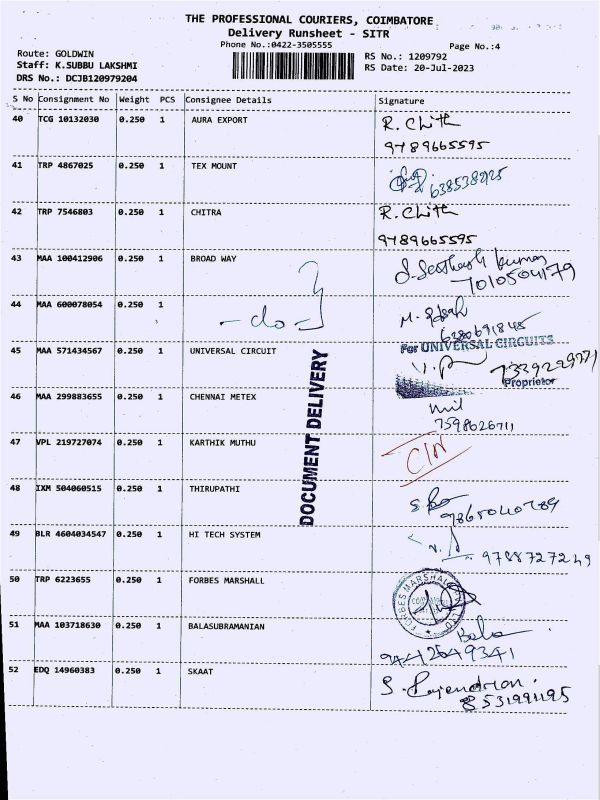 THE PROFESSIONAL COURIERS, COIMBATORE
Delivery Runsheet - SITR
Phone No.:0422-3505555
Page No.:4
Route: GOLDWIN
Staff: K.SUBBU LAKSHMI
DRS No.: DCJB120979204
RS No.: 1209792
RS Date: 20-Jul-2023
S No Consignment No Weight PCS Consignee Details Signature
40 TCG 10132030 0.250 1 AURA EXPORT R. Chith
9789665595
41 TRP 4867025 0.250 1 TEX MOUNT
42 TRP 7546803 0.250 1 CHITRA R. Chith
9789665595
43 MAA 100412906 0.250 1 BROAD WAY
7010504179
44 MAA 600078054 0.250 1 -do-
6280691845
45 MAA 571434567 0.250 1 UNIVERSAL CIRCUIT For UNIVERSAL CIRCUITS
Proprietor
46 MAA 299883655 0.250 1 CHENNAI METEX
7598626711
47 VPL 219727074 0.250 1 KARTHIK MUTHU
48 IXM 504060515 0.250 1 THIRUPATHI
49 BLR 4604034547 0.250 1 HI TECH SYSTEM
9788727249
50 TRP 6223655 0.250 1 FORBES MARSHALL
51 MAA 103718630 0.250 1 BALASUBRAMANIAN Bala
9442649341
52 EDQ 14960383 0.250 1 SKAAT S. Rajendran.
8531991195
DOCUMENT DELIVERY